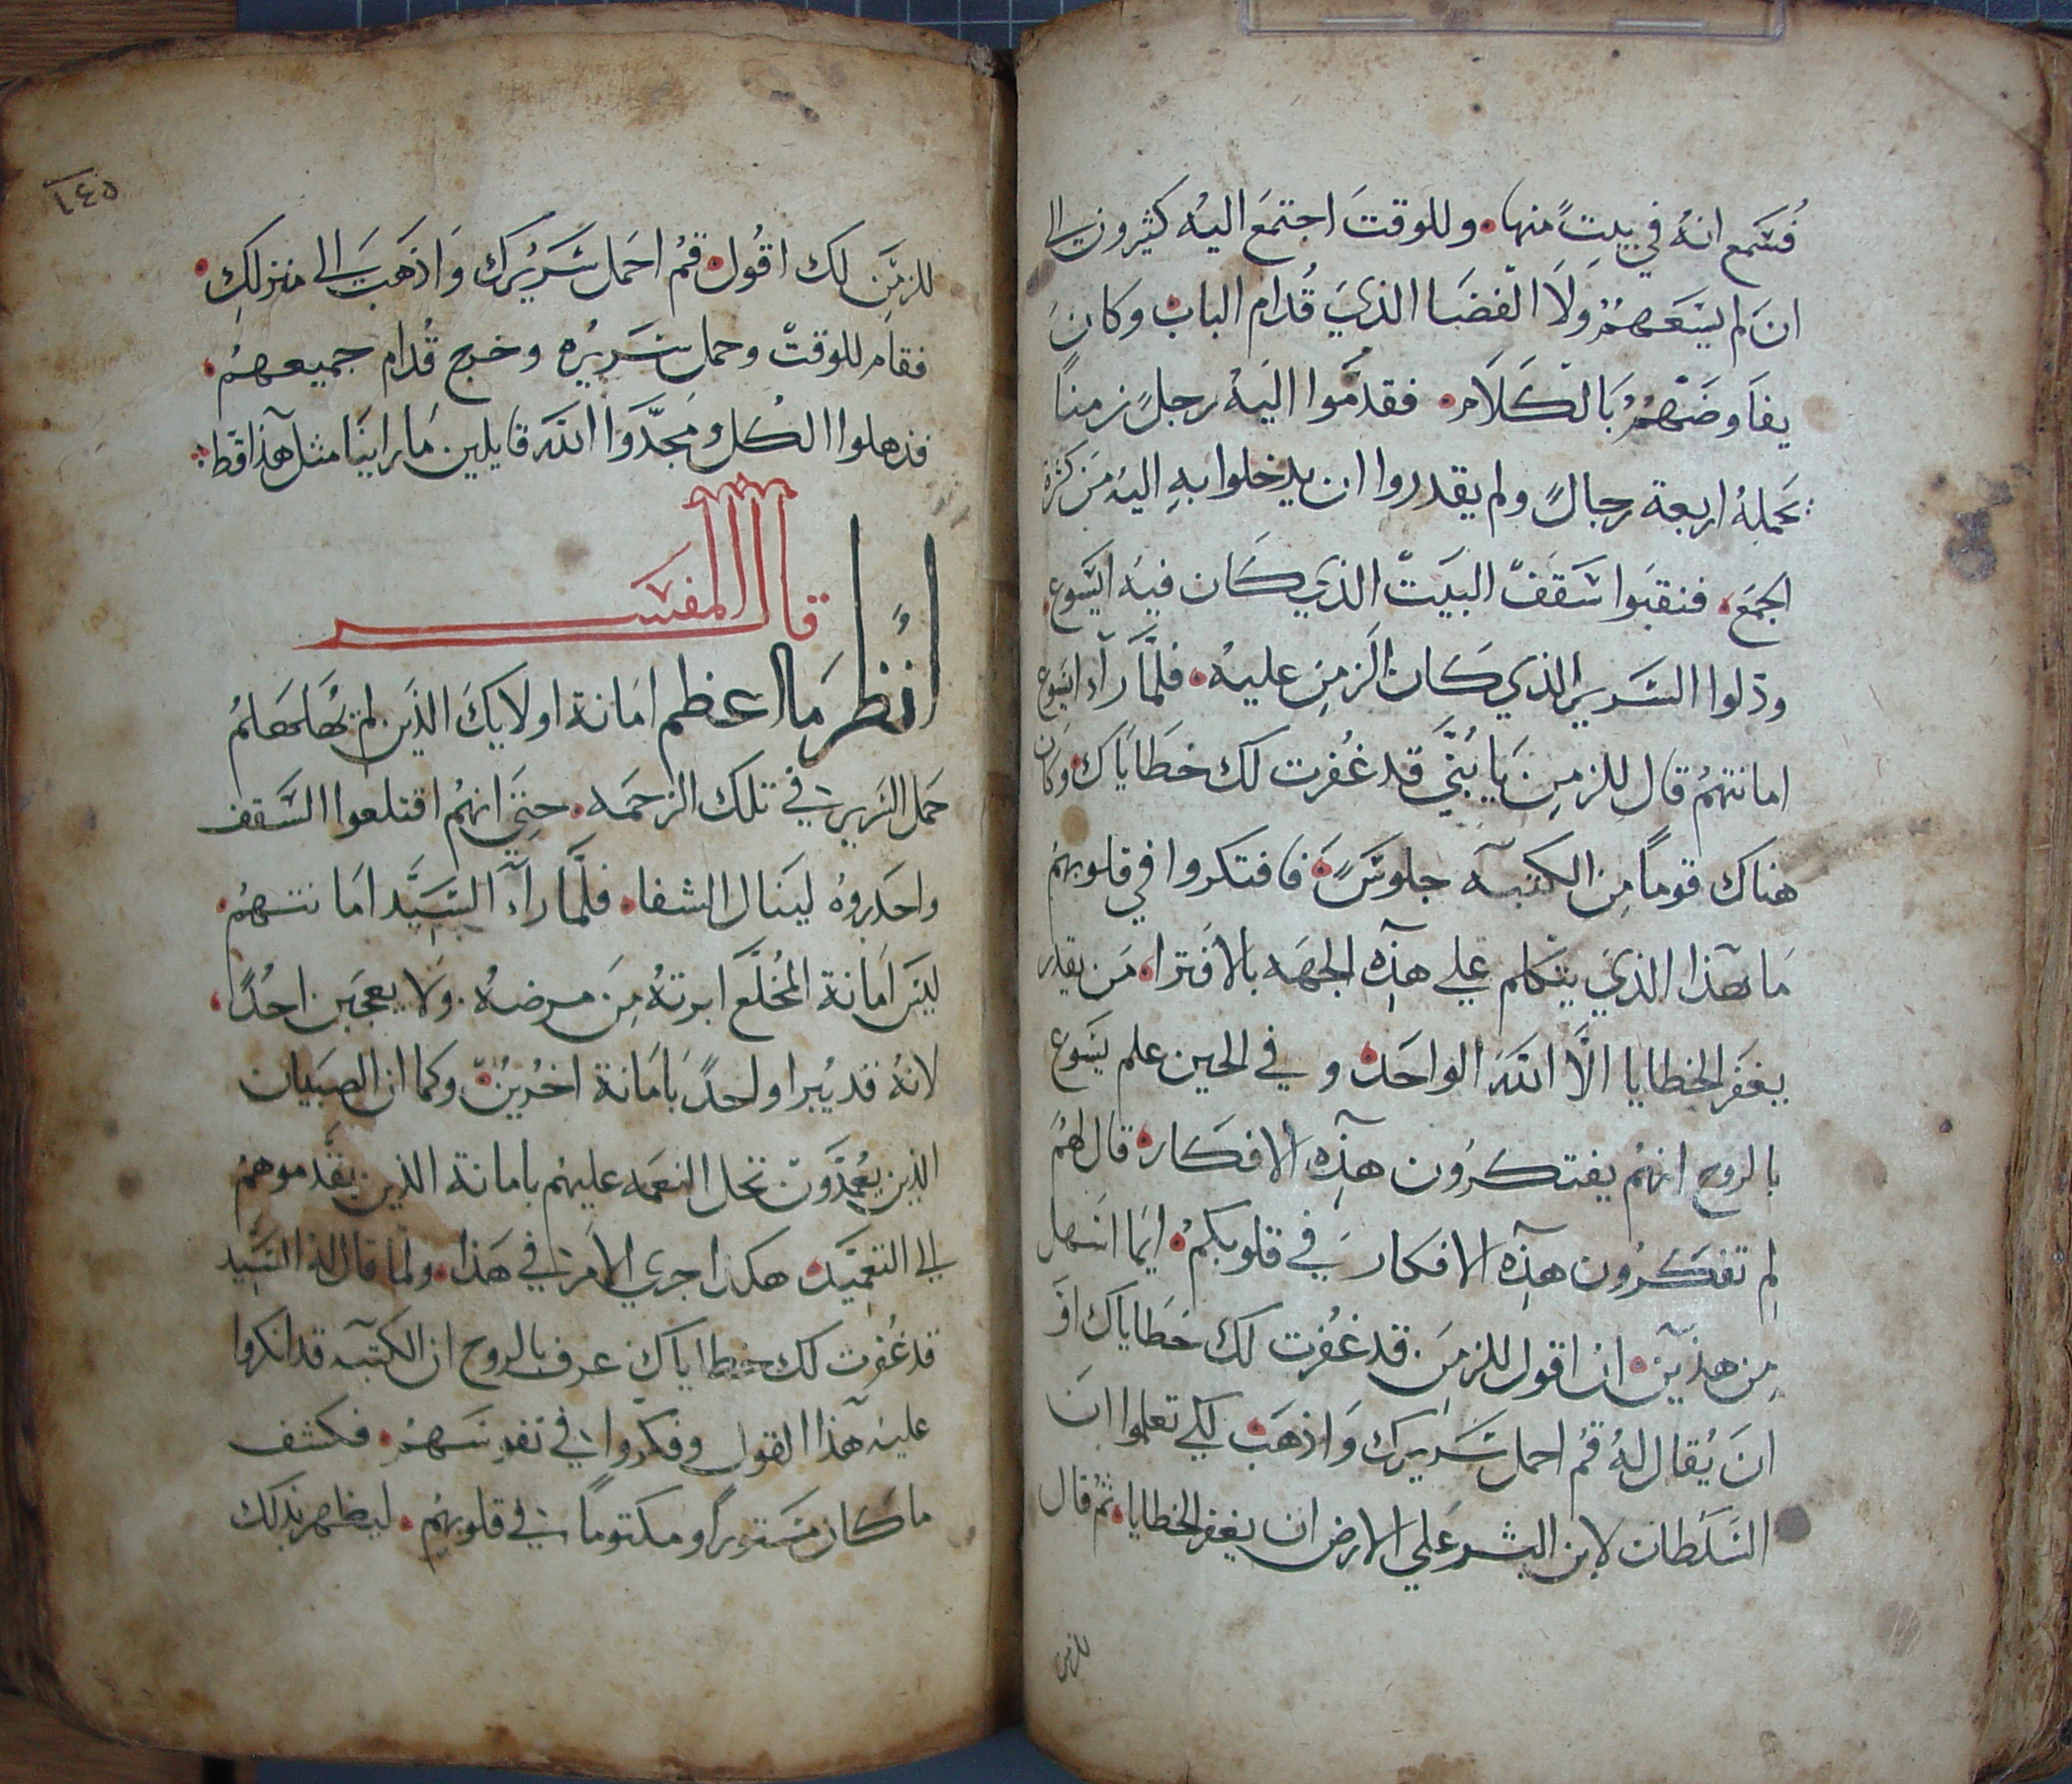 فسمع انه في بيت منها وللوقت اجتمع اليه كثيرون الى
ان لم يسعهم ولا الفضا الذي قدام الباب وكان
يفاوضهم بالكلام فقدموا اليه رجل زمناً
تحمله اربعة رجال ولم يقدروا ان يدخلوا به اليه من كثرة
الجمع فنقبوا سقف البيت الذي كان فيه ايسوع
ودلوا السرير الذي كان الزمن عليه فلما راء ايسوع
امانتهم قال للزمن يا بني قد غفرت لك خطاياك وكان
هناك قوماً من الكتبه جلوس فافتكروا في قلوبهم
ما هذا الذي يتكلم علي هذه الجهه بالافترا من يقدر
يغفر الخطايا الا الله الواحد وفي الحين علم يسوع
بالروح انهم يفتكرون هذه الافكار قال لهم
لم تفكرون هذه الافكار في قلوبكم ايما اسهل
من هذين ان اقول للزمن قد غفرت لك خطاياك او
ان يقال له قم احمل سريرك واذهب لكي تعلموا ان
السلطان لابن البشر علي الارض ان يغفر الخطايا ثم قال
للزمن
١٤٥
للزمن لك اقول قم احمل سريرك واذهب الى منزلك
فقام للوقت وحمل سريره وخرج قدام جميعهم
فذهلوا الكل ومجدوا الله قايلين ما راينا مثل هذا قط
قال المفسر
انظر ما اعظم امانة اولايك الذين لم
حمل السرير في تلك الزحمه حتى انهم اقتلعوا السقف
واحدروه لينال الشفا فلما راء السيد امانتهم
ليس امانة المخلع ابرته من مرضه ولا يعجبن احدًا
لانه قد يبرا واحد بامانة اخرين وكما ان الصبيان
الذين يعمدون تحل النعمه عليهم بامانة الذين يقدموهم
الى التعميد هكذا جري الامر في هذا ولما قال له السيد
قد غفرت لك خطاياك عرف بالروح ان الكتبه قد انكروا
عليه هذا القول وفكروا في نفوسهم فكشف
ما كان مستوراً ومكتوماً في قلوبهم ليظهر بذلك